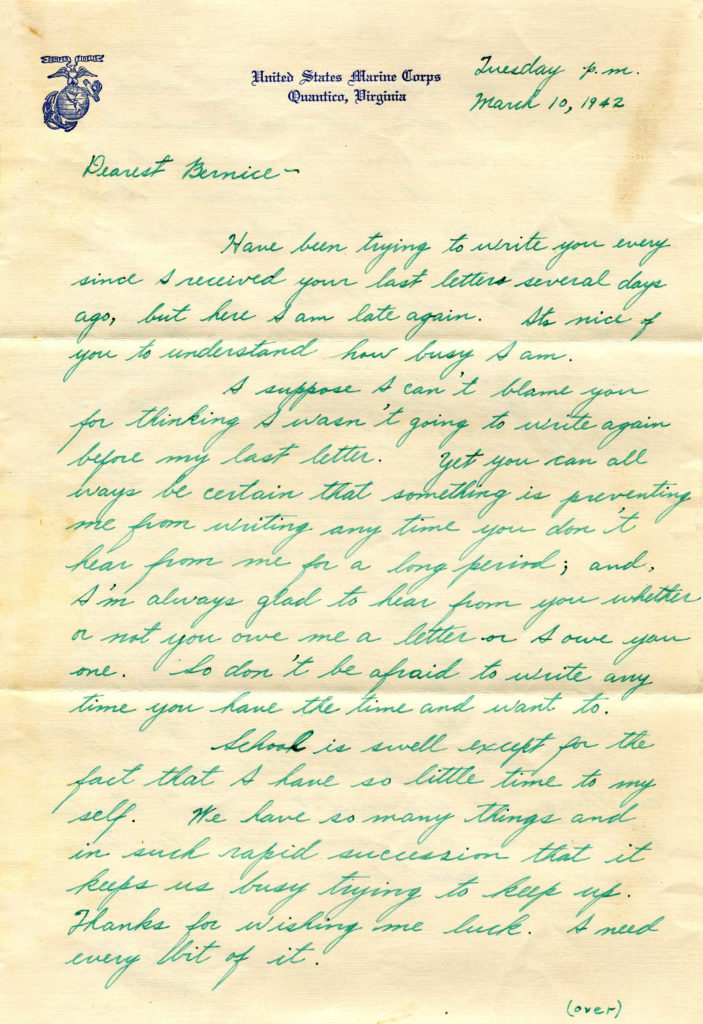 United States Marine Corps
Quantico, Virginia
Tuesday p.m.
March 10, 1942
Dearest Bernice—
Have been trying to write you every
since I received your last letters several days
ago, but here I am late again. Its nice of
you to understand how busy I am.
I suppose I can't blame you
for thinking I wasn't going to write again
before my last letter. Yet you can all
ways be certain that something is preventing
me from writing any time you don't
hear from me for a long period; and,
I'm always glad to hear from you whether
or not you owe me a letter or I owe you
one. So don't be afraid to write any
time you have the time and want to.
School is swell except for the
fact that I have so little time to my
self. We have so many things and
in such rapid succession that it
keeps us busy trying to keep up.
Thanks for wishing me luck. I need
every bit of it.
(over)